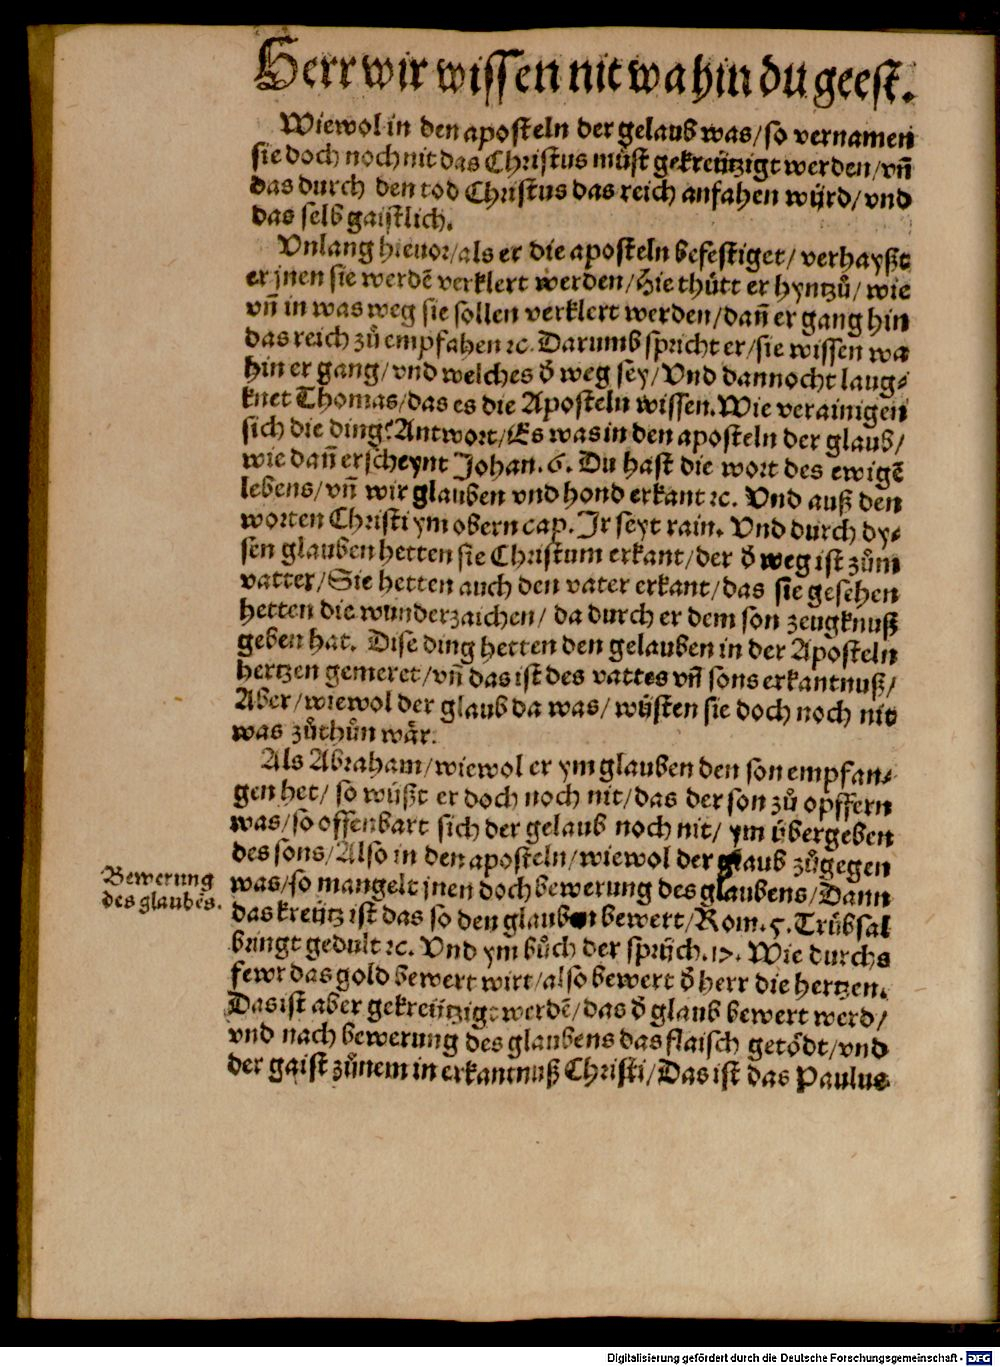 Herr wir wissen nit wa hin du geest.
Wiewol in den aposteln der gelaub was/so vernamen
sie doch noch nit das Christus müst gekreützigt werden/vñ
das durch den tod Christus das reich anfahen würd/vnd
das selb gaistlich.
Vnlang hieuor/als er die aposteln befestiget/verhayßt
er jnen sie werdẽ verklert werden/Hie thůtt er hyntzů/wie
vñ in was weg sie sollen verklert werden/dañ er gang hin
das reich zů empfahen ꝛc. Darumb spricht er/sie wissen wa
hin er gang/vnd welches d̕ weg sey/Vnd dannocht laug⸗
knet Thomas/das es die Aposteln wissen. Wie verainigen
sich die ding? Antwort/Es was in den aposteln der glaub/
wie dañ erscheynt Johan. 6. Du hast die wort des ewigẽ
lebens/vñ wir glauben vnd hond erkant ꝛc. Vnd auß den
worten Christi ym obern cap. Jr seyt rain. Vnd durch dy⸗
sen glauben hetten sie Christum erkant/der d̕ weg ist zům
vatter/Sie hetten auch den vater erkant/das sie gesehen
hetten die wunderzaichen/da durch er dem son zeugknuß
geben hat. Dise ding hetten den gelauben in der Aposteln
hertzen gemeret/vñ das ist des vattes vñ sons erkantnuß/
Aber/wiewol der glaub da was/wüsten sie doch noch nit
was zůthůn wår.
Als Abraham/wiewol er ym glauben den son empfan⸗
gen het/so wüßt er doch noch nit/das der son zů opffern
was/so offenbart sich der gelaub noch nit/ym übergeben
des sons/Also in den aposteln/wiewol der glaub zůgegen
was/so mangelt jnen doch bewerung des glaubens/Dann
das kreütz ist das so den glauben bewert/Rom. 5. Trübsal
bringt gedult ꝛc. Vnd ym bůch der sprüch. 17. Wie durchs
fewr das gold bewert wirt/also bewert d̕ herr die hertzen.
Das ist aber gekreützigt werdẽ/das d̕ glaub bewert werd/
vnd nach bewerung des glaubens das flaisch getödt/vnd
der gaist zůnem in erkantnuß Christi/Das ist das Paulus
Bewerung
des glaubẽs.
Digitalisierung gefördert durch die Deutsche Forschungsgemeinschaft - DFG